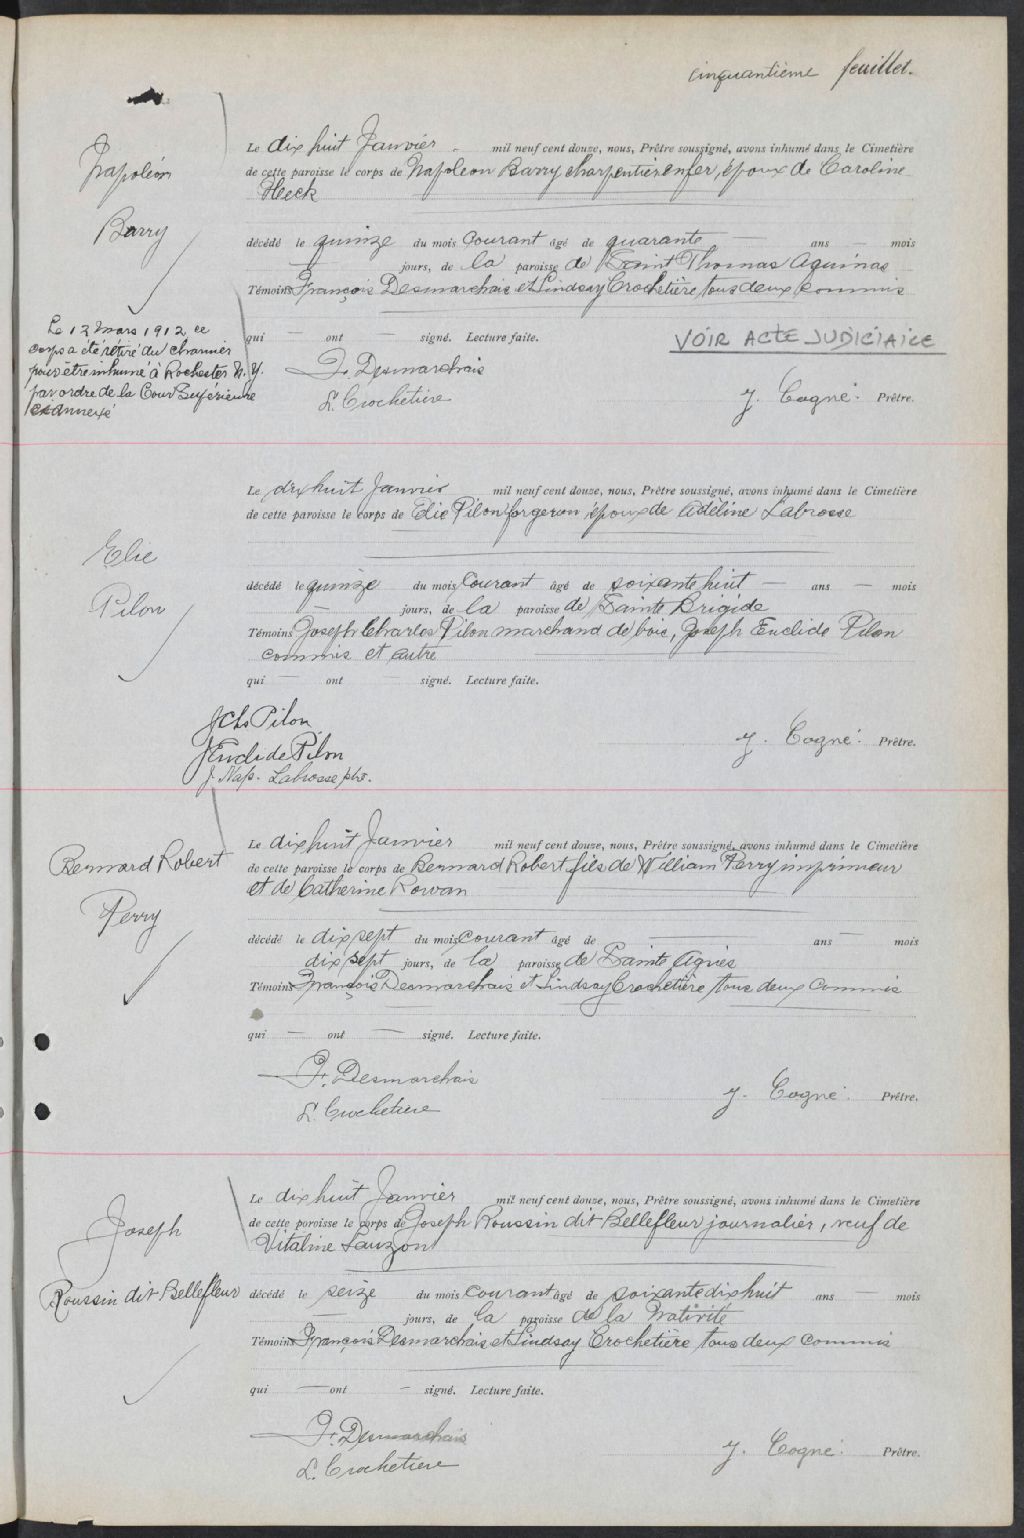 cinquantième feuillet.
Napoléon
Barry
Le dix huit Janvier - mil neuf cent douze, nous, Prêtre soussigné, avons inhumé dans le Cimetière
de cette paroisse le corps de Napoleon Barry charpentier en fer, époux de Caroline
Heeck
décédé le quinze du mois courant âgé de quarante — ans — mois
— jours, de la paroisse de Saint Thomas Aquinas
Témoins François Desmarchais et Lindsay Crochetière tous deux commis
qui — ont — signé. Lecture faite.
VOIR ACTE JUDICIAIRE
F. Desmarchais
L. Crochetiere
J. Cogné. Prêtre.
Le 12 Mars 1912 ce
corps a été retiré du charnier
pour être inhumé à Rochester N. Y.
par ordre de la Cour Supérieure
ci annexé
Elie
Pilon
Le dix huit Janvier mil neuf cent douze, nous, Prêtre soussigné, avons inhumé dans le Cimetière
de cette paroisse le corps de Elie Pilon forgeron époux de Adéline Labrosse
décédé le quinze du mois courant âgé de soixante huit — ans — mois
— jours, de la paroisse de Sainte Brigide
Témoins Joseph Charles Pilon marchand de bois, Joseph Euclide Pilon
commis et autre
qui — ont — signé. Lecture faite.
J Chs Pilon
J Euclide Pilon
J. Nap. Labrosse ptre.
J. Cogné. Prêtre.
Bernard Robert
Perry
Le dix huit Janvier mil neuf cent douze, nous, Prêtre soussigné, avons inhumé dans le Cimetière
de cette paroisse le corps de Bernard Robert fils de William Perry imprimeur
et de Catherine Rowan
décédé le dix sept du mois courant âgé de — ans — mois
dix sept jours, de la paroisse de Sainte Agnès
Témoins François Desmarchais et Lindsay Crochetière tous deux commis
qui — ont — signé. Lecture faite.
F. Desmarchais
L. Crochetiere
J. Cogné. Prêtre.
Joseph
Roussin dit Bellefleur
Le dix huit Janvier mil neuf cent douze, nous, Prêtre soussigné, avons inhumé dans le Cimetière
de cette paroisse le corps de Joseph Roussin dit Bellefleur journalier, veuf de
Vitaline Lauzon
décédé le seize du mois courant âgé de soixante dix huit ans — mois
— jours, de la paroisse de la Nativité
Témoins François Desmarchais et Lindsay Crochetière tous deux commis
qui — ont — signé. Lecture faite.
F. Desmarchais
L. Crochetiere
J. Cogné. Prêtre.